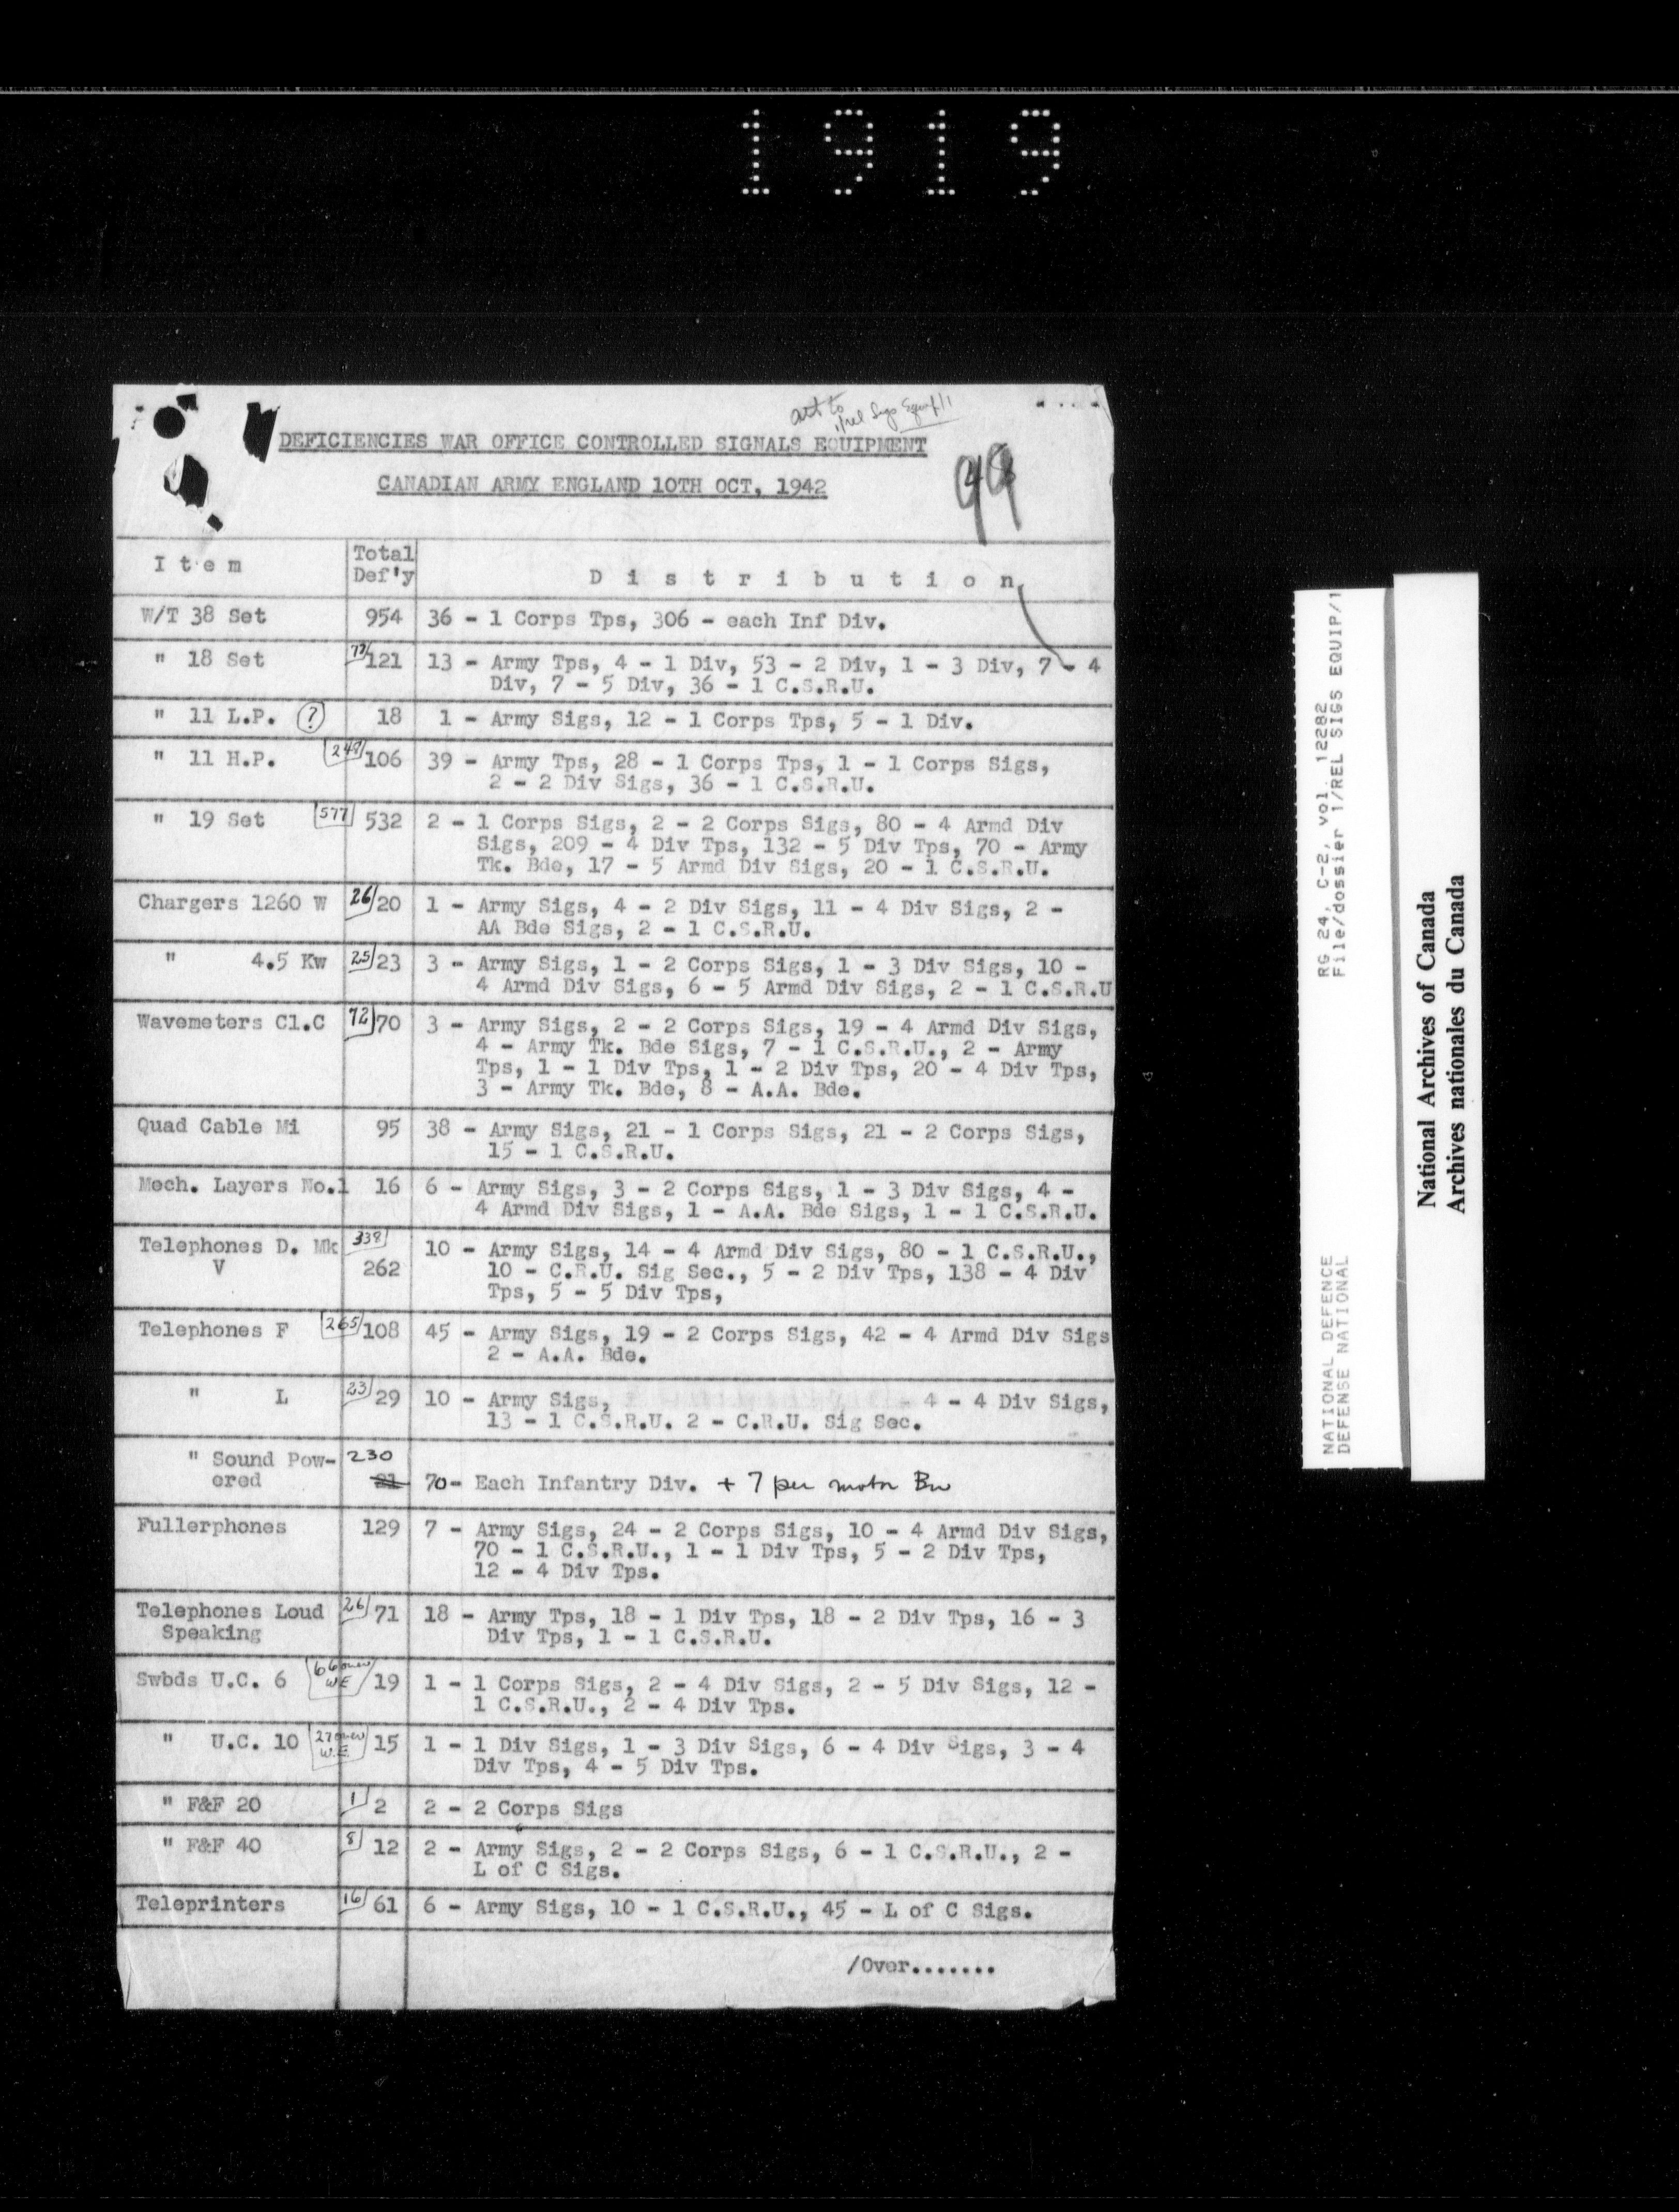 1919
att to
1/rel Sigs Equip/1
DEFICIENCIES WAR OFFICE CONTROLLED SIGNALS EQUIPMENT
CANADIAN ARMY ENGLAND 10TH OCT, 1942
Item Total Def'y Distribution
W/T 38 Set 954 36 - 1 Corps Tps, 306 - each Inf Div.
" 18 Set 121 13 - Army Tps, 4 - 1 Div, 53 - 2 Div, 1 - 3 Div, 7 - 4
Div, 7 - 5 Div, 36 - 1 C.S.R.U.
" 11 L.P. ? 18 1 - Army Sigs, 12 - 1 Corps Tps, 5 - 1 Div.
" 11 H.P. 106 39 - Army Tps, 28 - 1 Corps Tps, 1 - 1 Corps Sigs,
2 - 2 Div Sigs, 36 - 1 C.S.R.U.
" 19 Set 577 532 2 - 1 Corps Sigs, 2 - 2 Corps Sigs, 80 - 4 Armd Div
Sigs, 209 - 4 Div Tps, 132 - 5 Div Tps, 70 - Army
Tk. Bde, 17 - 5 Armd Div Sigs, 20 - 1 C.S.R.U.
Chargers 1260 W 26 20 1 - Army Sigs, 4 - 2 Div Sigs, 11 - 4 Div Sigs, 2 -
AA Bde Sigs, 2 - 1 C.S.R.U.
" 4.5 Kw 25 23 3 - Army Sigs, 1 - 2 Corps Sigs, 1 - 3 Div Sigs, 10 -
4 Armd Div Sigs, 6 - 5 Armd Div Sigs, 2 - 1 C.S.R.U
Wavemeters Cl.C 72 70 3 - Army Sigs, 2 - 2 Corps Sigs, 19 - 4 Armd Div Sigs,
4 - Army Tk. Bde Sigs, 7 - 1 C.S.R.U., 2 - Army
Tps, 1 - 1 Div Tps, 1 - 2 Div Tps, 20 - 4 Div Tps,
3 - Army Tk. Bde, 8 - A.A. Bde.
Quad Cable Mi 95 38 - Army Sigs, 21 - 1 Corps Sigs, 21 - 2 Corps Sigs,
15 - 1 C.S.R.U.
Mech. Layers No.1 16 6 - Army Sigs, 3 - 2 Corps Sigs, 1 - 3 Div Sigs, 4 -
4 Armd Div Sigs, 1 - A.A. Bde Sigs, 1 - 1 C.S.R.U.
Telephones D. Mk 338 10 - Army Sigs, 14 - 4 Armd Div Sigs, 80 - 1 C.S.R.U.,
V 262 10 - C.R.U. Sig Sec., 5 - 2 Div Tps, 138 - 4 Div
Tps, 5 - 5 Div Tps,
Telephones F 265 108 45 - Army Sigs, 19 - 2 Corps Sigs, 42 - 4 Armd Div Sigs
2 - A.A. Bde.
" L 23 29 10 - Army Sigs, - 4 - 4 Div Sigs,
13 - 1 C.S.R.U. 2 - C.R.U. Sig Sec.
" Sound Pow- 230
ered 21 70 - Each Infantry Div. + 7 per motor Bn
Fullerphones 129 7 - Army Sigs, 24 - 2 Corps Sigs, 10 - 4 Armd Div Sigs,
70 - 1 C.S.R.U., 1 - 1 Div Tps, 5 - 2 Div Tps,
12 - 4 Div Tps.
Telephones Loud 26 71 18 - Army Tps, 18 - 1 Div Tps, 18 - 2 Div Tps, 16 - 3
Speaking Div Tps, 1 - 1 C.S.R.U.
Swbds U.C. 6 66 on new W.E 19 1 - 1 Corps Sigs, 2 - 4 Div Sigs, 2 - 5 Div Sigs, 12 -
1 C.S.R.U., 2 - 4 Div Tps.
" U.C. 10 27 on new W.E. 15 1 - 1 Div Sigs, 1 - 3 Div Sigs, 6 - 4 Div Sigs, 3 - 4
Div Tps, 4 - 5 Div Tps.
" F&F 20 1 2 2 - 2 Corps Sigs
" F&F 40 8 12 2 - Army Sigs, 2 - 2 Corps Sigs, 6 - 1 C.S.R.U., 2 -
L of C Sigs.
Teleprinters 16 61 6 - Army Sigs, 10 - 1 C.S.R.U., 45 - L of C Sigs.
/Over.......
NATIONAL DEFENCE RG 24, C-2, vol. 12282
DEFENSE NATIONAL File/dossier 1/REL SIGS EQUIP/1
National Archives of Canada
Archives nationales du Canada